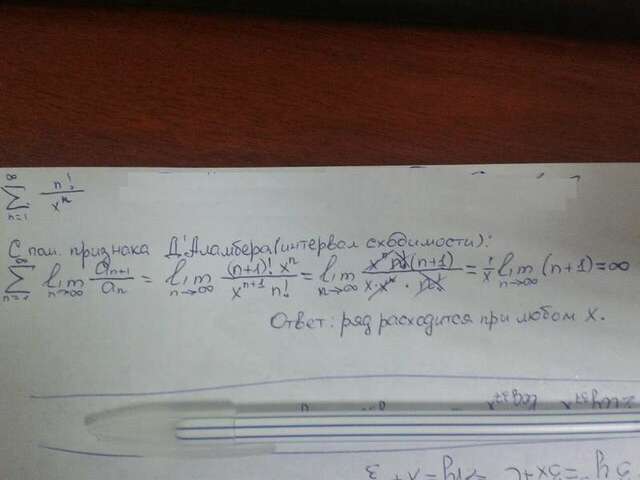 ∞ ∑ n=1 n! / xⁿ
С пом. признака Д'Аламбера (интервал сходимости):
∞ ∑ n=1 lim n→∞ aₙ₊₁ / aₙ = lim n→∞ (n+1)! xⁿ / xⁿ⁺¹ n! = lim n→∞ xⁿ n! (n+1) / x·xⁿ · n! = 1/x lim n→∞ (n+1) = ∞
Ответ: ряд расходится при любом x.